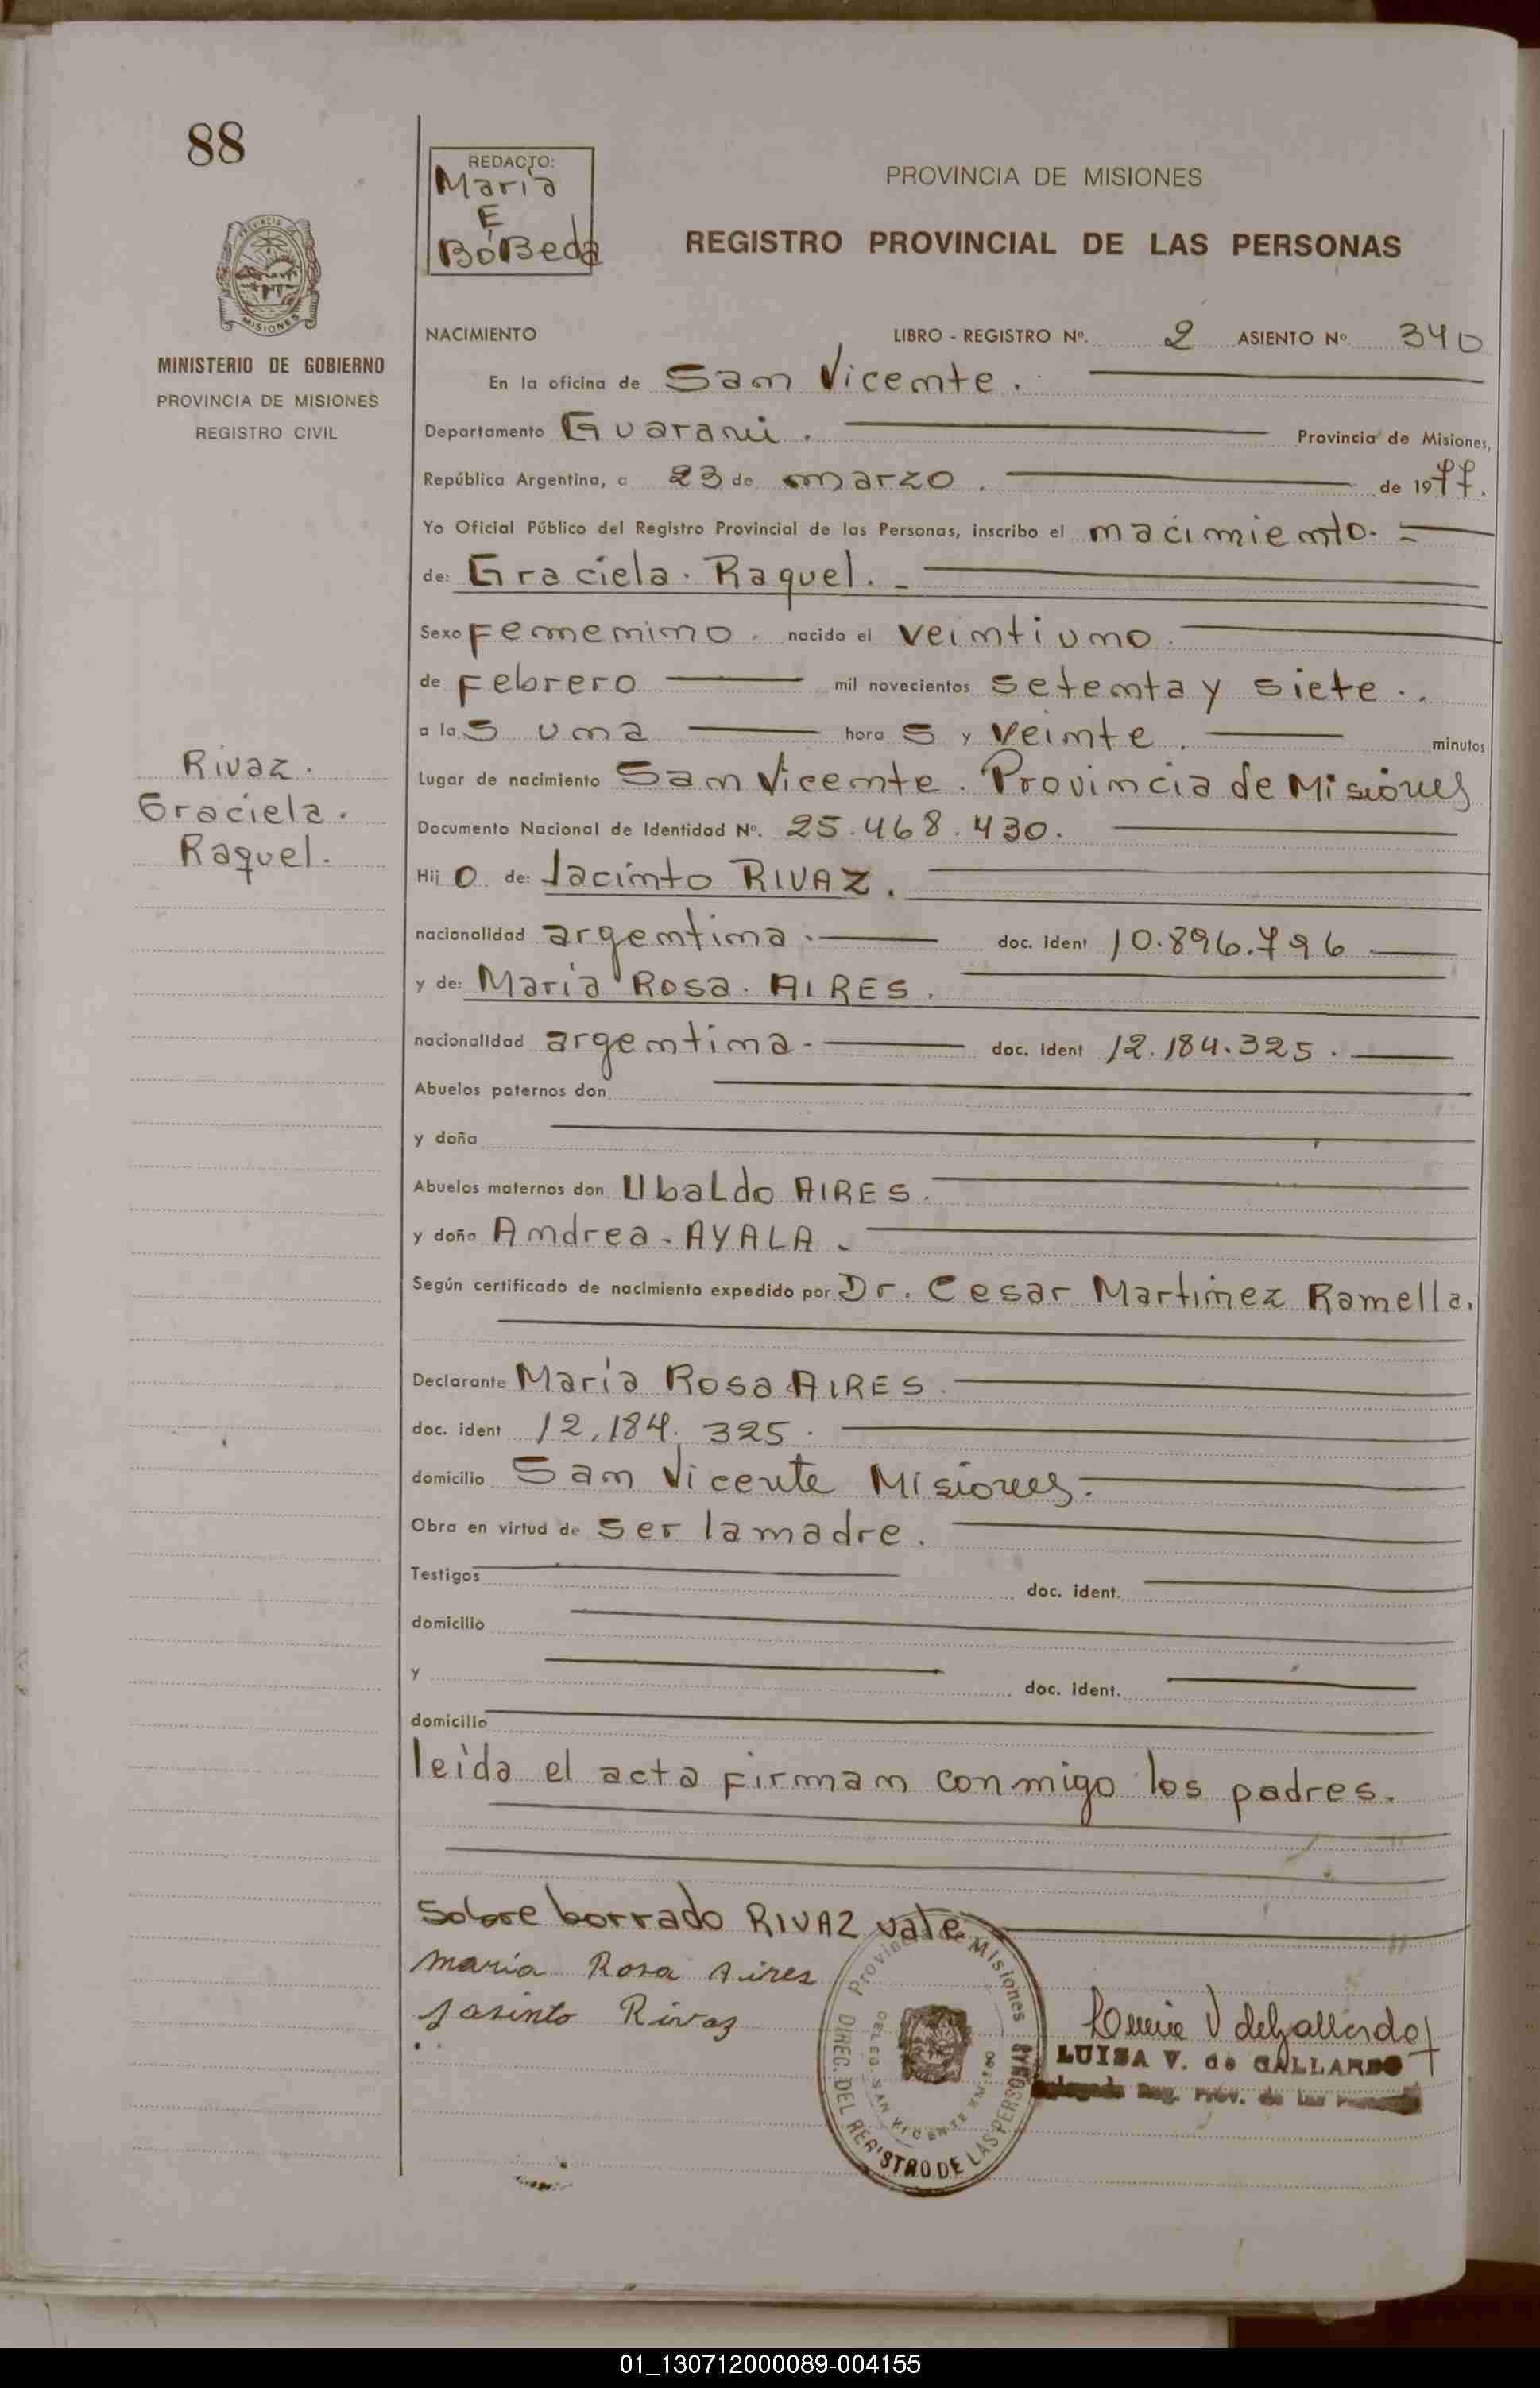 88
REDACTO:
Maria
E
BóBeda
PROVINCIA DE MISIONES
REGISTRO PROVINCIAL DE LAS PERSONAS
MISIONES
MINISTERIO DE GOBIERNO
PROVINCIA DE MISIONES
REGISTRO CIVIL
NACIMIENTO LIBRO - REGISTRO Nº. 2 ASIENTO Nº 340
En la oficina de San Vicente.
Departamento Guarani. Provincia de Misiones,
República Argentina, a 23 de marzo. de 1977.
Yo Oficial Público del Registro Provincial de las Personas, inscribo el nacimiento.
de: Graciela. Raquel.
Sexo Femenino. nacido el veintiuno.
de Febrero mil novecientos setenta y siete..
a las una hora s y veinte. minutos
Lugar de nacimiento San Vicente. Provincia de Misiones
Documento Nacional de Identidad Nº. 25.468.430.
Hijo de: Jacinto RIVAZ.
nacionalidad argentina. doc. ident 10.896.796
y de: Maria Rosa. AIRES.
nacionalidad argentina. doc. ident 12.184.325.
Abuelos paternos don
y doña
Abuelos maternos don Ubaldo AIRES.
y doña Andrea. AYALA.
Según certificado de nacimiento expedido por Dr. Cesar Martinez Ramella.
Declarante Maria Rosa AIRES.
doc. ident 12.184.325.
domicilio San Vicente Misiones.
Obra en virtud de ser la madre.
Testigos doc. ident.
domicilio
y doc. ident.
domicilio
leida el acta firman conmigo los padres.
Sobre borrado RIVAZ vale
Rivaz.
Graciela.
Raquel.
maria Rosa Aires
Jasinto Rivaz
Provincia de Misiones
DIREC. DEL REGISTRO DE LAS PERSONAS
DELEG. SAN VICENTE
LUISA V. de GALLARDO
Delegada Reg. Prov. de las Personas
01_130712000089-004155